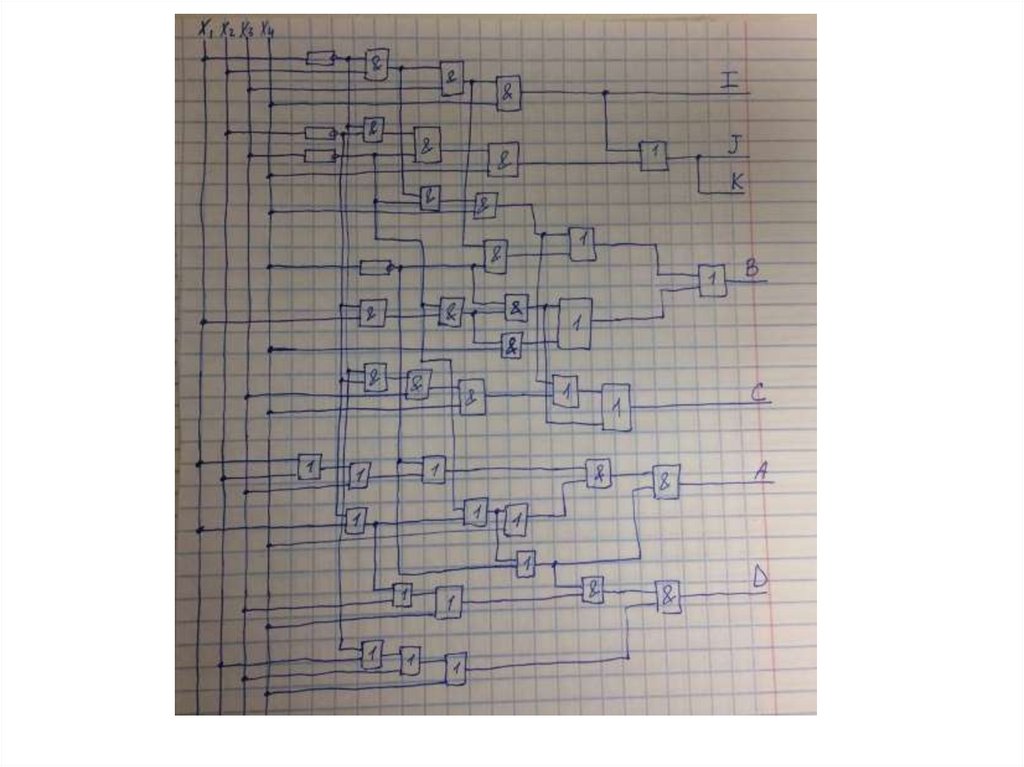 X₁ X₂ X₃ X₄
&
&
&
I
&
&
&
1
J
K
&
&
&
1
1
B
&
&
&
1
&
&
&
&
1
1
C
1
1
1
&
&
A
1
1
1
1
&
&
D
1
1
1
1
1